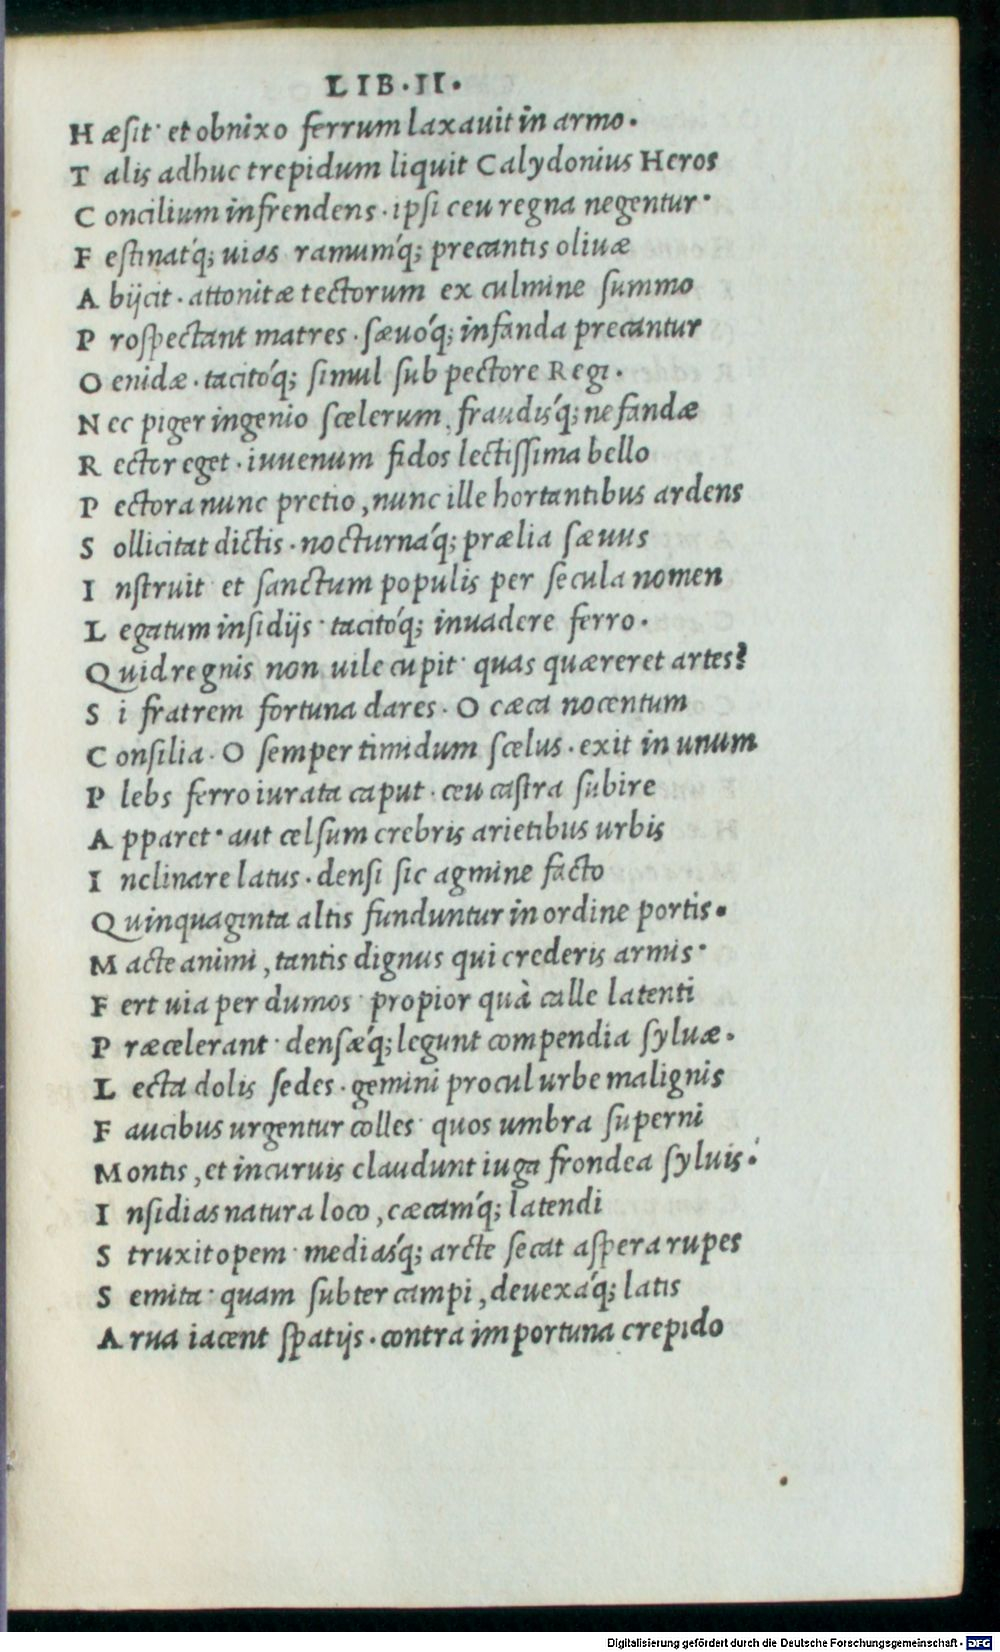 LIB·II·
H æsit· et obnixo ferrum laxauit in armo.
T alis adhuc trepidum liquit Calydonius Heros
C oncilium infrendens· ipsi ceu regna negentur·
F estinat'q; uias ramum'q; precantis oliuæ
A bijcit· attonitæ tectorum ex culmine summo
P rospectant matres· sæuó'q; infanda precantur
O enidæ· tacitó'q; simul sub pectore Regi.
N ec piger ingenio scelerum, fraudis'q; nefandæ
R ector eget· iuuenum fidos lectissima bello
P ectora nunc pretio, nunc ille hortantibus ardens
S ollicitat dictis· nocturná'q; prælia sæuus
I nstruit et sanctum populis per secula nomen
L egatum insidijs· tacitó'q; inuadere ferro.
Quid regnis non uile cupit· quas quæreret artes?
S i fratrem fortuna dares· O cæca nocentum
C onsilia· O semper timidum scelus· exit in unum
P lebs ferro iurata caput· ceu castra subire
A pparet· aut celsum crebris arietibus urbis
I nclinare latus· densi sic agmine facto
Quinquaginta altis funduntur in ordine portis.
M acte animi, tantis dignus qui crederis armis·
F ert uia per dumos· propior quà calle latenti
P ræcelerant· densæ'q; legunt compendia syluæ.
L ecta dolis sedes· gemini procul urbe malignis
F aucibus urgentur colles· quos umbra superni
Montis, et incuruis claudunt iuga frondea syluis:
I nsidias natura loco, cæcam'q; latendi
S truxit opem· medias'q; arcte secat aspera rupes
S emita· quam subter campi, deuexá'q; latis
A rua iacent spatijs· contra importuna crepido
Digitalisierung gefördert durch die Deutsche Forschungsgemeinschaft - DFG